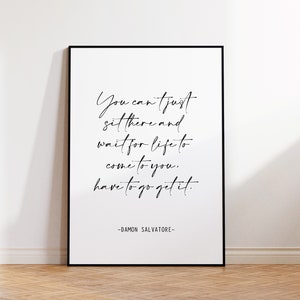 You can't just
sit there and
wait for life to
come to you,
have to go get it.
-DAMON SALVATORE-